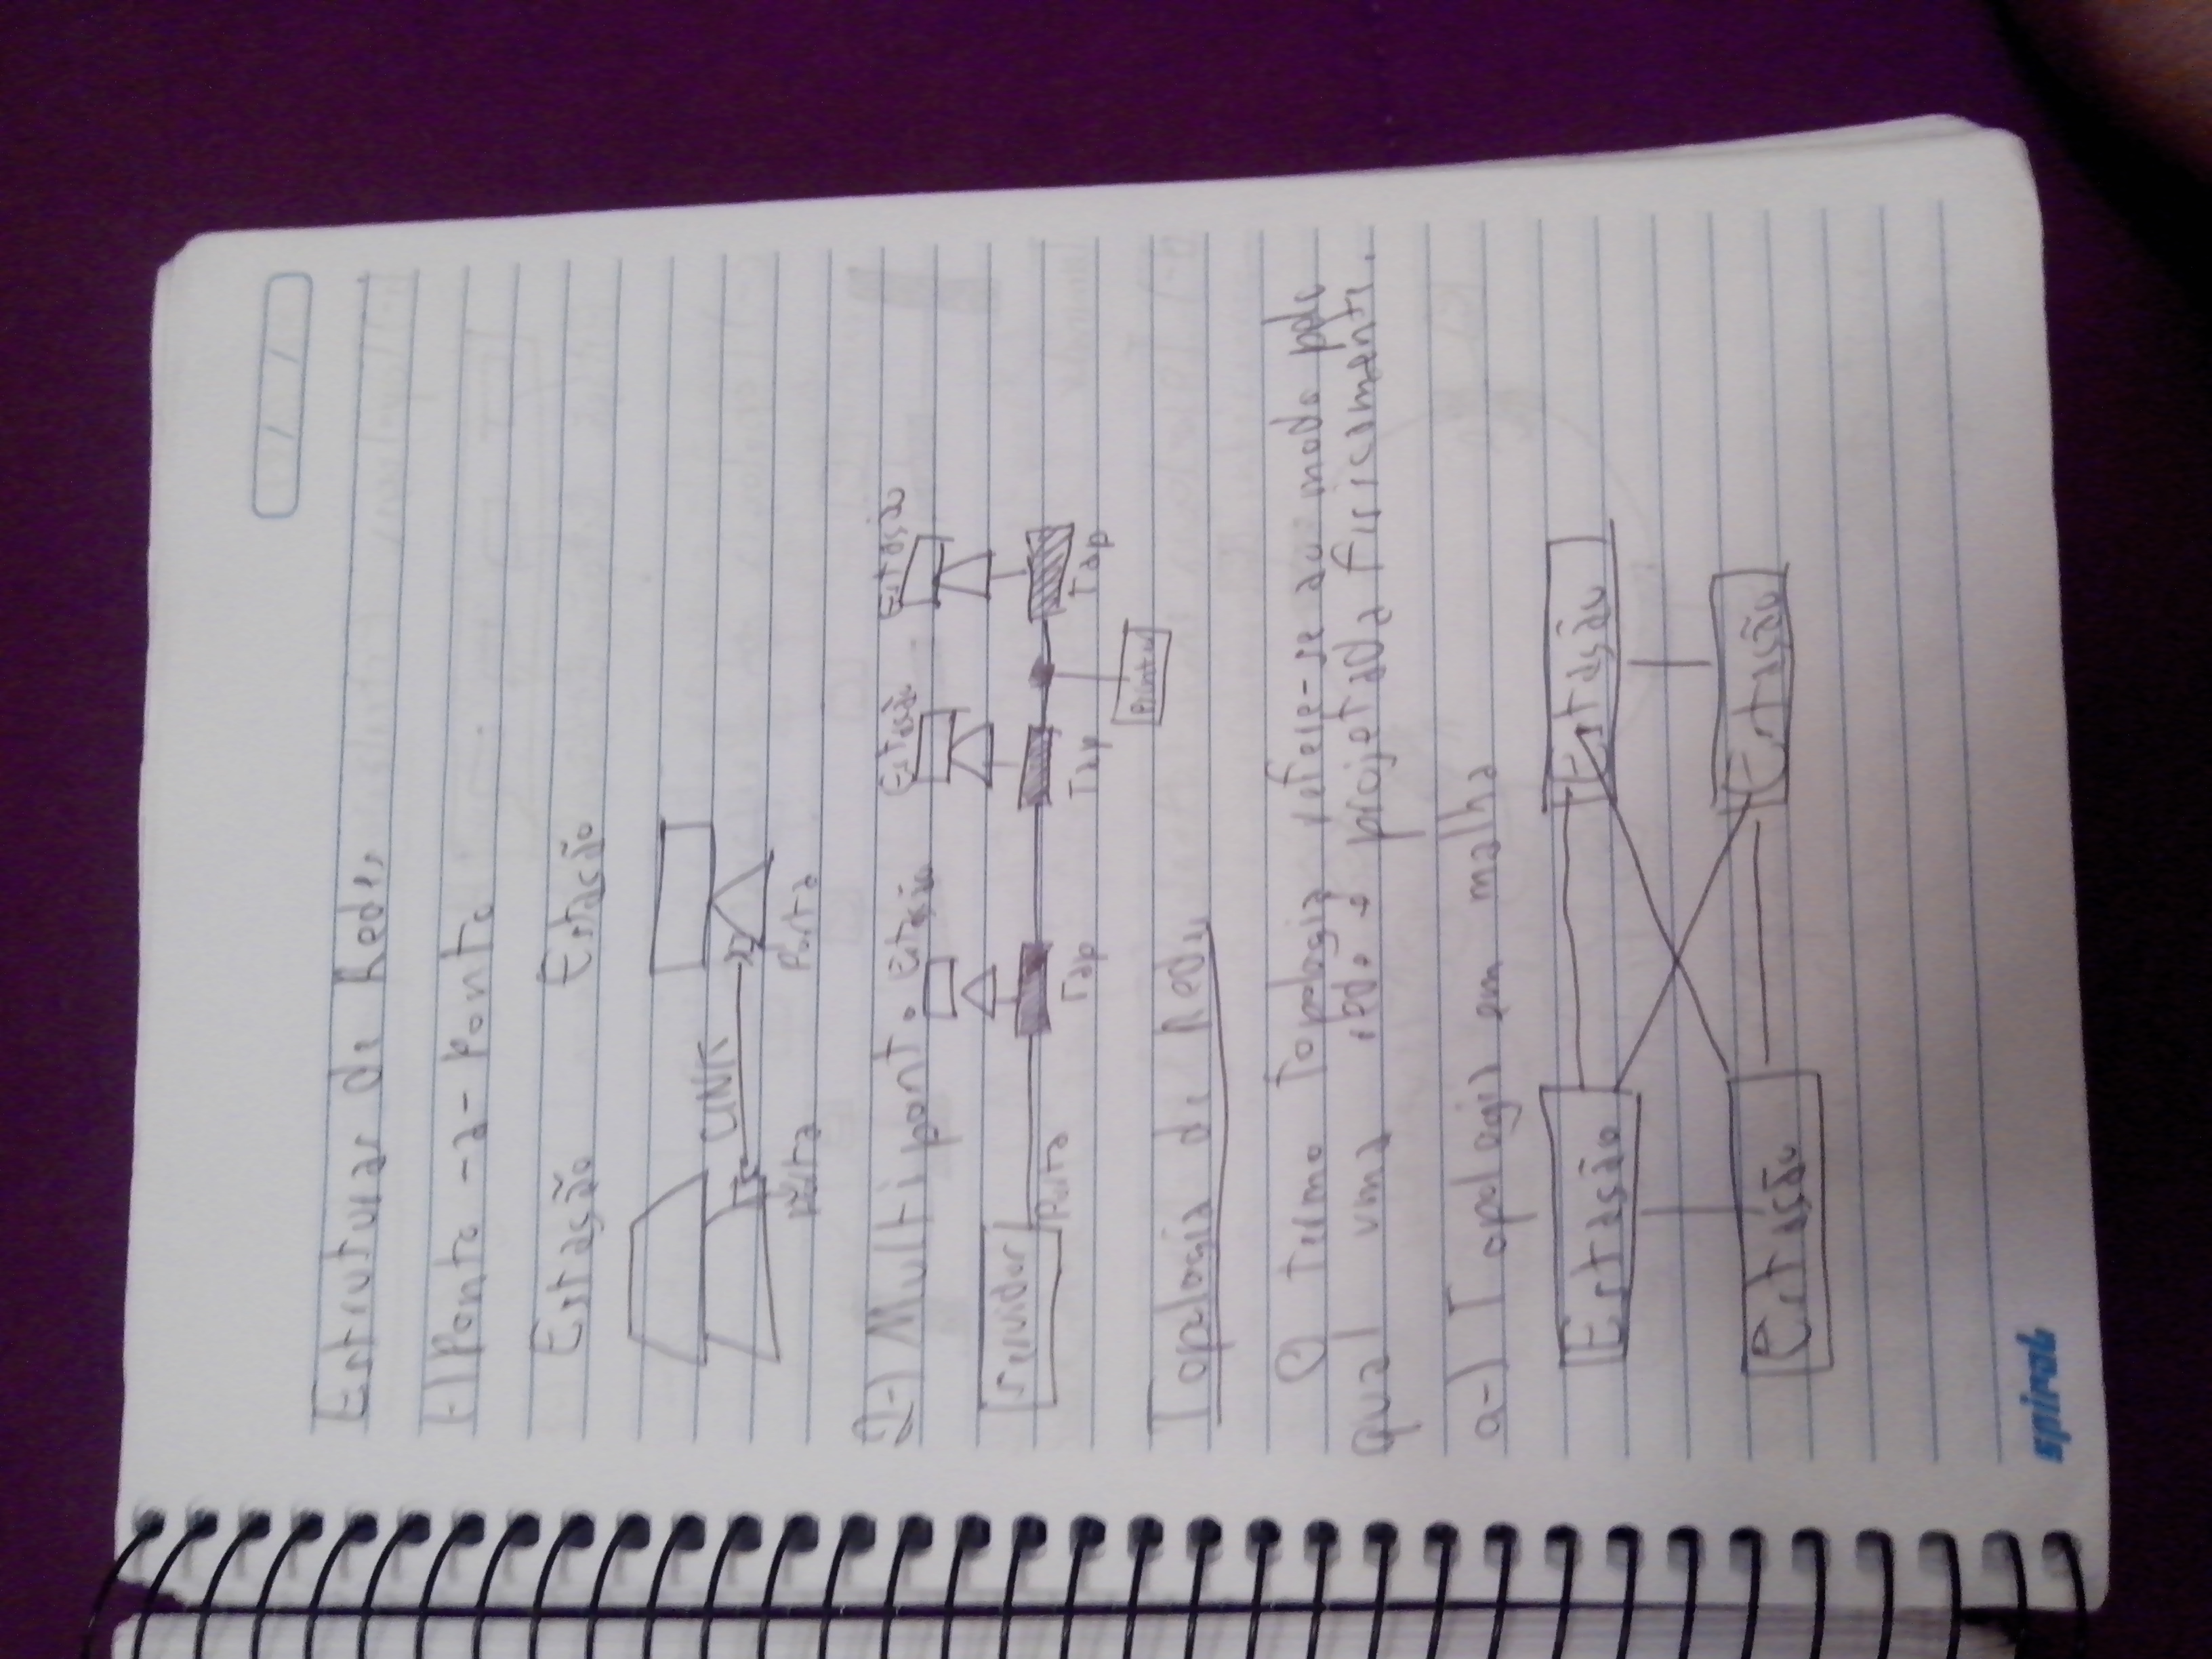 Estruturas de Redes
1-) Ponto-a-Ponto
Estação Estação
LINK
Porta Porta
2-) Multiponto Estação Estação Estação
Servidor
Porta
Tap Tap Tap
Printer
Topologia de Rede
O termo topologia refere-se ao modo pelo
qual uma rede é projetada fisicamente.
a-) Topologia em malha
Estação Estação
Estação Estação
spiral